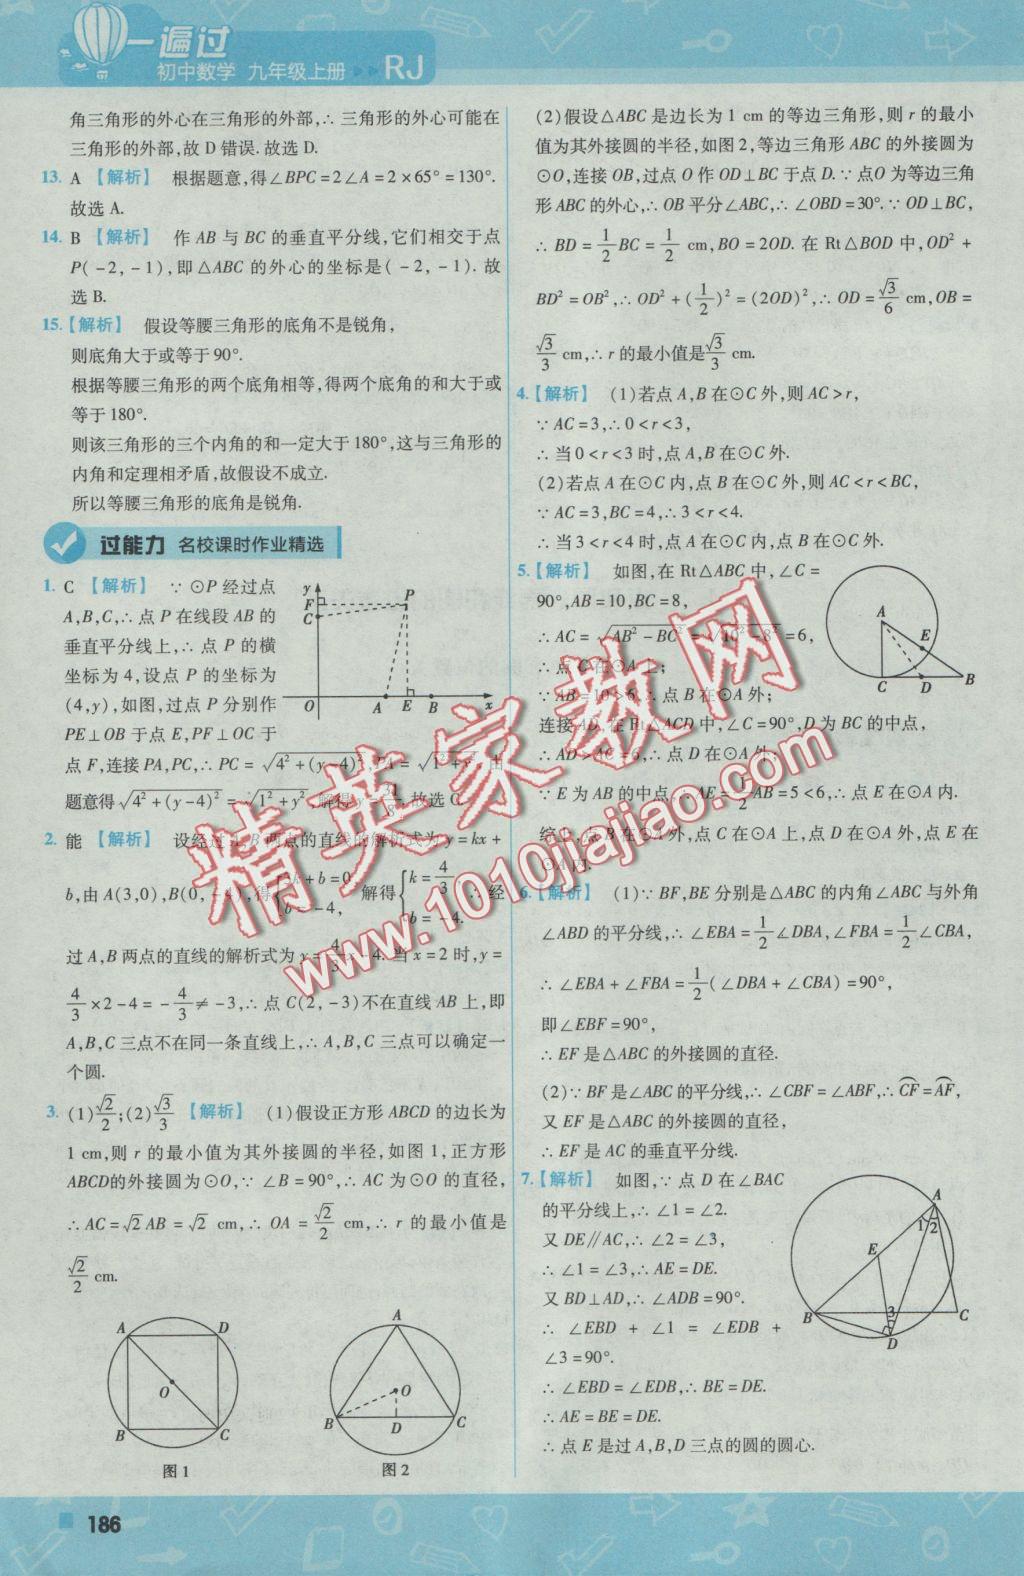 一遍过
初中数学 九年级上册 ▶▶ RJ
角三角形的外心在三角形的外部,∴ 三角形的外心可能在
三角形的外部,故 D 错误. 故选 D.
13. A 【解析】 根据题意,得∠BPC = 2∠A = 2 × 65° = 130°.
故选 A.
14. B 【解析】 作 AB 与 BC 的垂直平分线,它们相交于点
P( - 2, - 1),即△ABC 的外心的坐标是( - 2, - 1). 故
选 B.
15. 【解析】 假设等腰三角形的底角不是锐角,
则底角大于或等于 90°.
根据等腰三角形的两个底角相等,得两个底角的和大于或
等于 180°.
则该三角形的三个内角的和一定大于 180°,这与三角形的
内角和定理相矛盾,故假设不成立.
所以等腰三角形的底角是锐角.
过能力 名校课时作业精选
1. C 【解析】 ∵ ⊙P 经过点
A,B,C,∴ 点 P 在线段 AB 的
垂直平分线上,∴ 点 P 的横
坐标为 4,设点 P 的坐标为
(4,y),如图,过点 P 分别作
PE⊥OB 于点 E,PF⊥OC 于
点 F,连接 PA,PC,∴ PC = √(4² + (y - 4)²), PA = √(1² + y²), 由
题意得 √(4² + (y - 4)²) = √(1² + y²), 解得 y = 31/8. 故选 C.
y F C P O A E B x
2. 能 【解析】 设经过 A,B 两点的直线的解析式为 y = kx +
b,由 A(3,0),B(0, - 4),得 {3k + b = 0, b = - 4, 解得 {k = 4/3, b = - 4. ∴ 经
过 A,B 两点的直线的解析式为 y = 4/3 x - 4. 当 x = 2 时,y =
4/3 × 2 - 4 = - 4/3 ≠ - 3,∴ 点 C(2, - 3)不在直线 AB 上,即
A,B,C 三点不在同一条直线上,∴ A,B,C 三点可以确定一
个圆.
3. (1) √2/2; (2) √3/3 【解析】 (1)假设正方形 ABCD 的边长为
1 cm,则 r 的最小值为其外接圆的半径,如图 1,正方形
ABCD的外接圆为⊙O,∵ ∠B = 90°,∴ AC 为⊙O 的直径,
∴ AC = √2 AB = √2 cm,∴ OA = √2/2 cm,∴ r 的最小值是
√2/2 cm.
A D O B C
图 1
A O B D C
图 2
(2)假设△ABC 是边长为 1 cm 的等边三角形,则 r 的最小
值为其外接圆的半径,如图 2,等边三角形 ABC 的外接圆为
⊙O,连接 OB,过点 O 作 OD⊥BC 于点 D. ∵ 点O 为等边三角
形 ABC 的外心,∴ OB 平分∠ABC,∴ ∠OBD = 30°. ∵ OD⊥BC,
∴ BD = 1/2 BC = 1/2 cm,BO = 2OD. 在 Rt△BOD 中,OD² +
BD² = OB²,∴ OD² + (1/2)² = (2OD)²,∴ OD = √3/6 cm,OB =
√3/3 cm,∴ r 的最小值是 √3/3 cm.
4. 【解析】 (1)若点 A,B 在⊙C 外,则 AC > r,
∵ AC = 3,∴ 0 < r < 3,
∴ 当 0 < r < 3 时,点 A,B 在⊙C 外.
(2)若点 A 在⊙C 内,点 B 在⊙C 外,则 AC < r < BC,
∵ AC = 3,BC = 4,∴ 3 < r < 4.
∴ 当 3 < r < 4 时,点 A 在⊙C 内,点 B 在⊙C 外.
5. 【解析】 如图,在 Rt△ABC 中,∠C =
90°,AB = 10,BC = 8,
∴ AC = √(AB² - BC²) = √(10² - 8²) = 6,
∴ 点 C 在⊙A 上;
∵ AB = 10 > 6,∴ 点 B 在⊙A 外;
连接 AD,在 Rt△ACD 中,∠C = 90°,D 为 BC 的中点,
∴ AD > AC = 6,∴ 点 D 在⊙A 外;
∵ E 为 AB 的中点,∴ AE = 1/2 AB = 5 < 6,∴ 点 E 在⊙A 内.
综上,点 B 在⊙A 外,点 C 在⊙A 上,点 D 在⊙A 外,点 E 在
⊙A 内.
A E C D B
6. 【解析】 (1)∵ BF,BE 分别是△ABC 的内角∠ABC 与外角
∠ABD 的平分线,∴ ∠EBA = 1/2 ∠DBA,∠FBA = 1/2 ∠CBA,
∴ ∠EBA + ∠FBA = 1/2 (∠DBA + ∠CBA) = 90°,
即∠EBF = 90°,
∴ EF 是△ABC 的外接圆的直径.
(2)∵ BF 是∠ABC 的平分线,∴ ∠CBF = ∠ABF,∴ ⌒CF = ⌒AF,
又 EF 是△ABC 的外接圆的直径,
∴ EF 是 AC 的垂直平分线.
7. 【解析】 如图,∵ 点 D 在∠BAC
的平分线上,∴ ∠1 = ∠2.
又 DE∥AC,∴ ∠2 = ∠3,
∴ ∠1 = ∠3,∴ AE = DE.
又 BD⊥AD,∴ ∠ADB = 90°.
∴ ∠EBD + ∠1 = ∠EDB +
∠3 = 90°.
∴ ∠EBD = ∠EDB,∴ BE = DE.
∴ AE = BE = DE.
∴ 点 E 是过 A,B,D 三点的圆的圆心.
A 1 2 E B 3 D C
精英家教网
www.1010jiajiao.com
186